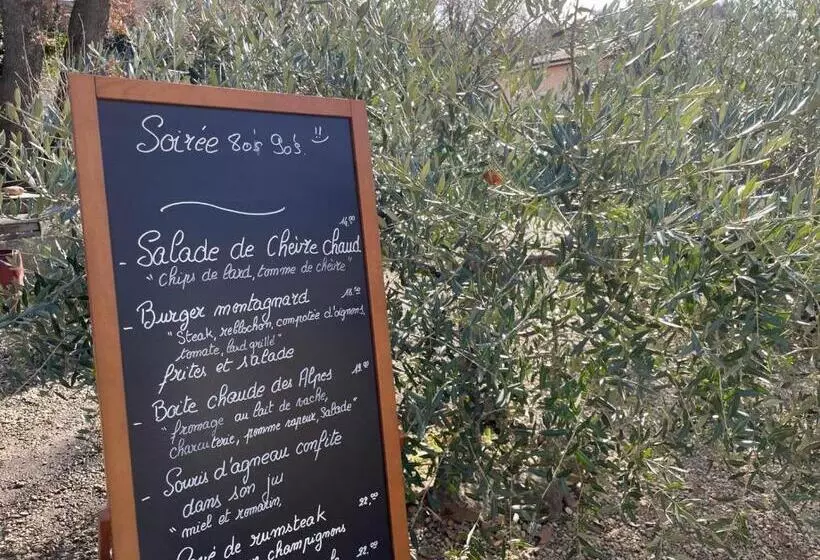 Soirée 80's 90's
14,00
- Salade de Chèvre chaud
"chips de lard, tomme de chèvre"
- Burger montagnard
"Steak, reblochon, compotée d'oignons,
tomate, lard grillé"
frites et salade
- Boite chaude des Alpes
"fromage au lait de vache,
charcuterie, pomme vapeur, salade"
- Souris d'agneau confite
dans son jus
"miel et romarin,
22,00
de rumsteak
champignons
22,00